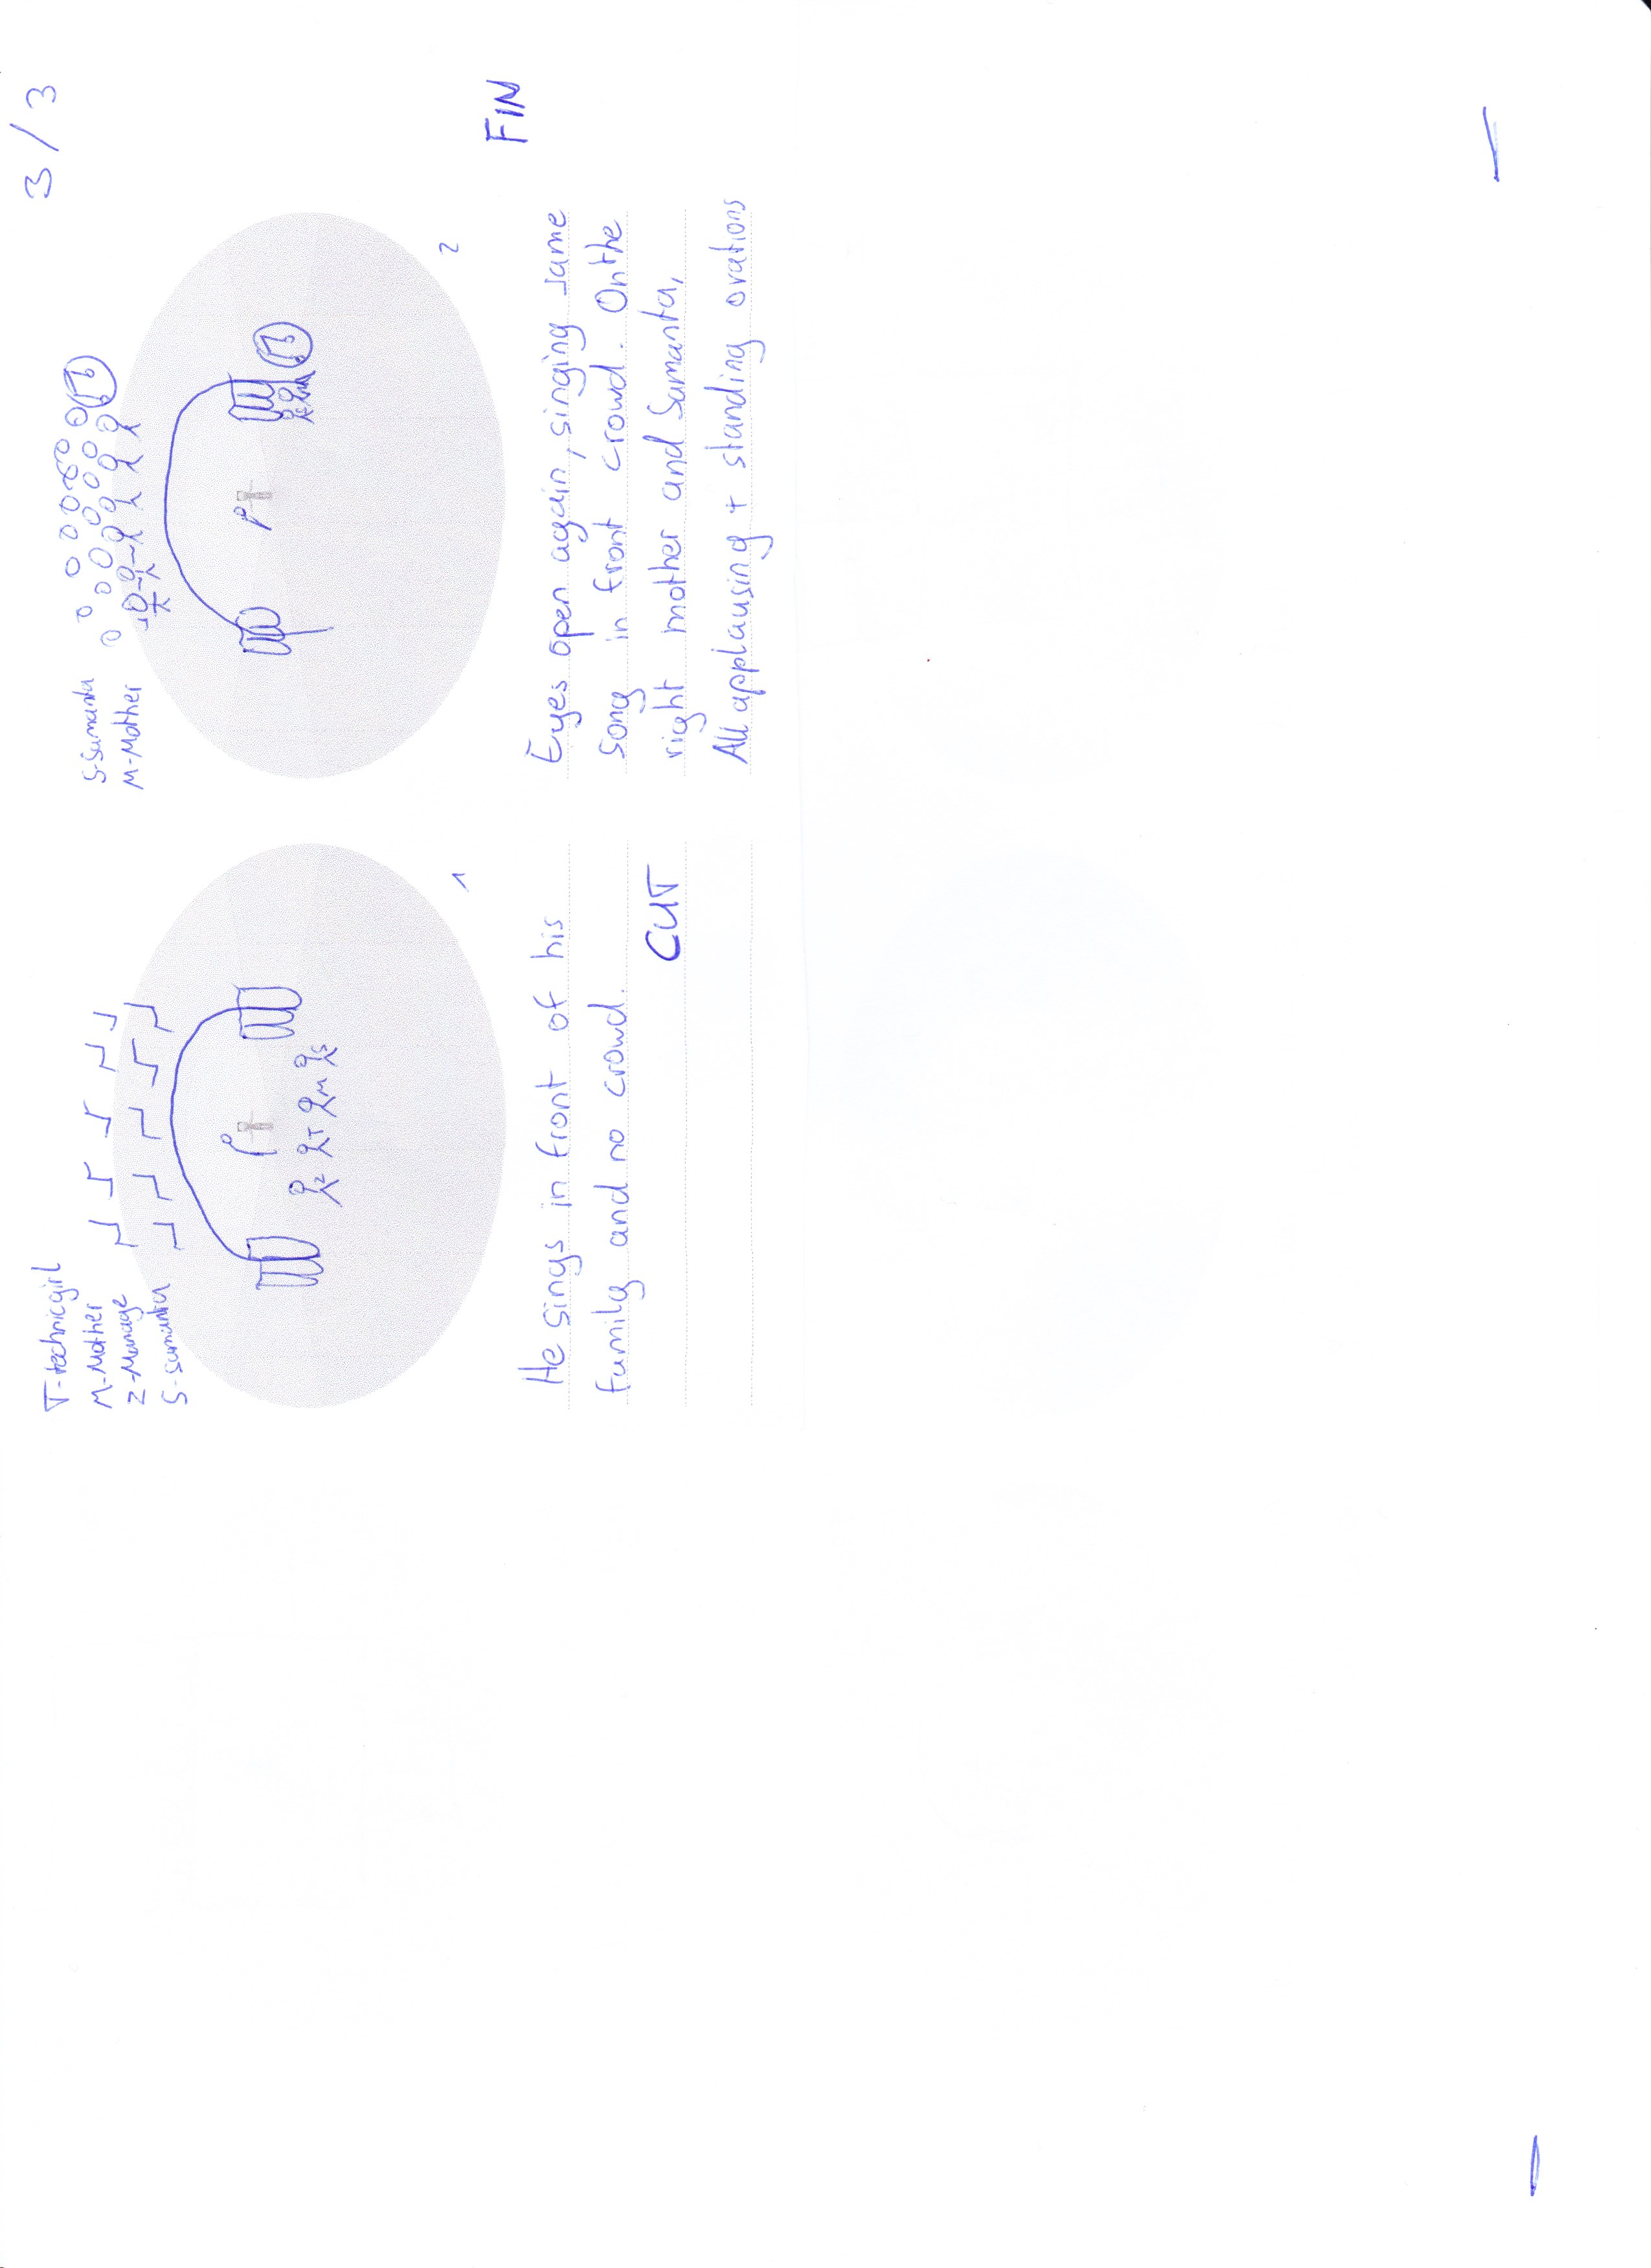 3/3
T-technicgirl
M-Mother
Z-Manage
S-Samanta
Z T M S
1
He sings in front of his
family and no crowd.
CUT
S-Samanta
M-Mother
S M
2
FIN
Eyes open again, singing same
song in front crowd. On the
right mother and Samanta,
All applausing + standing ovations